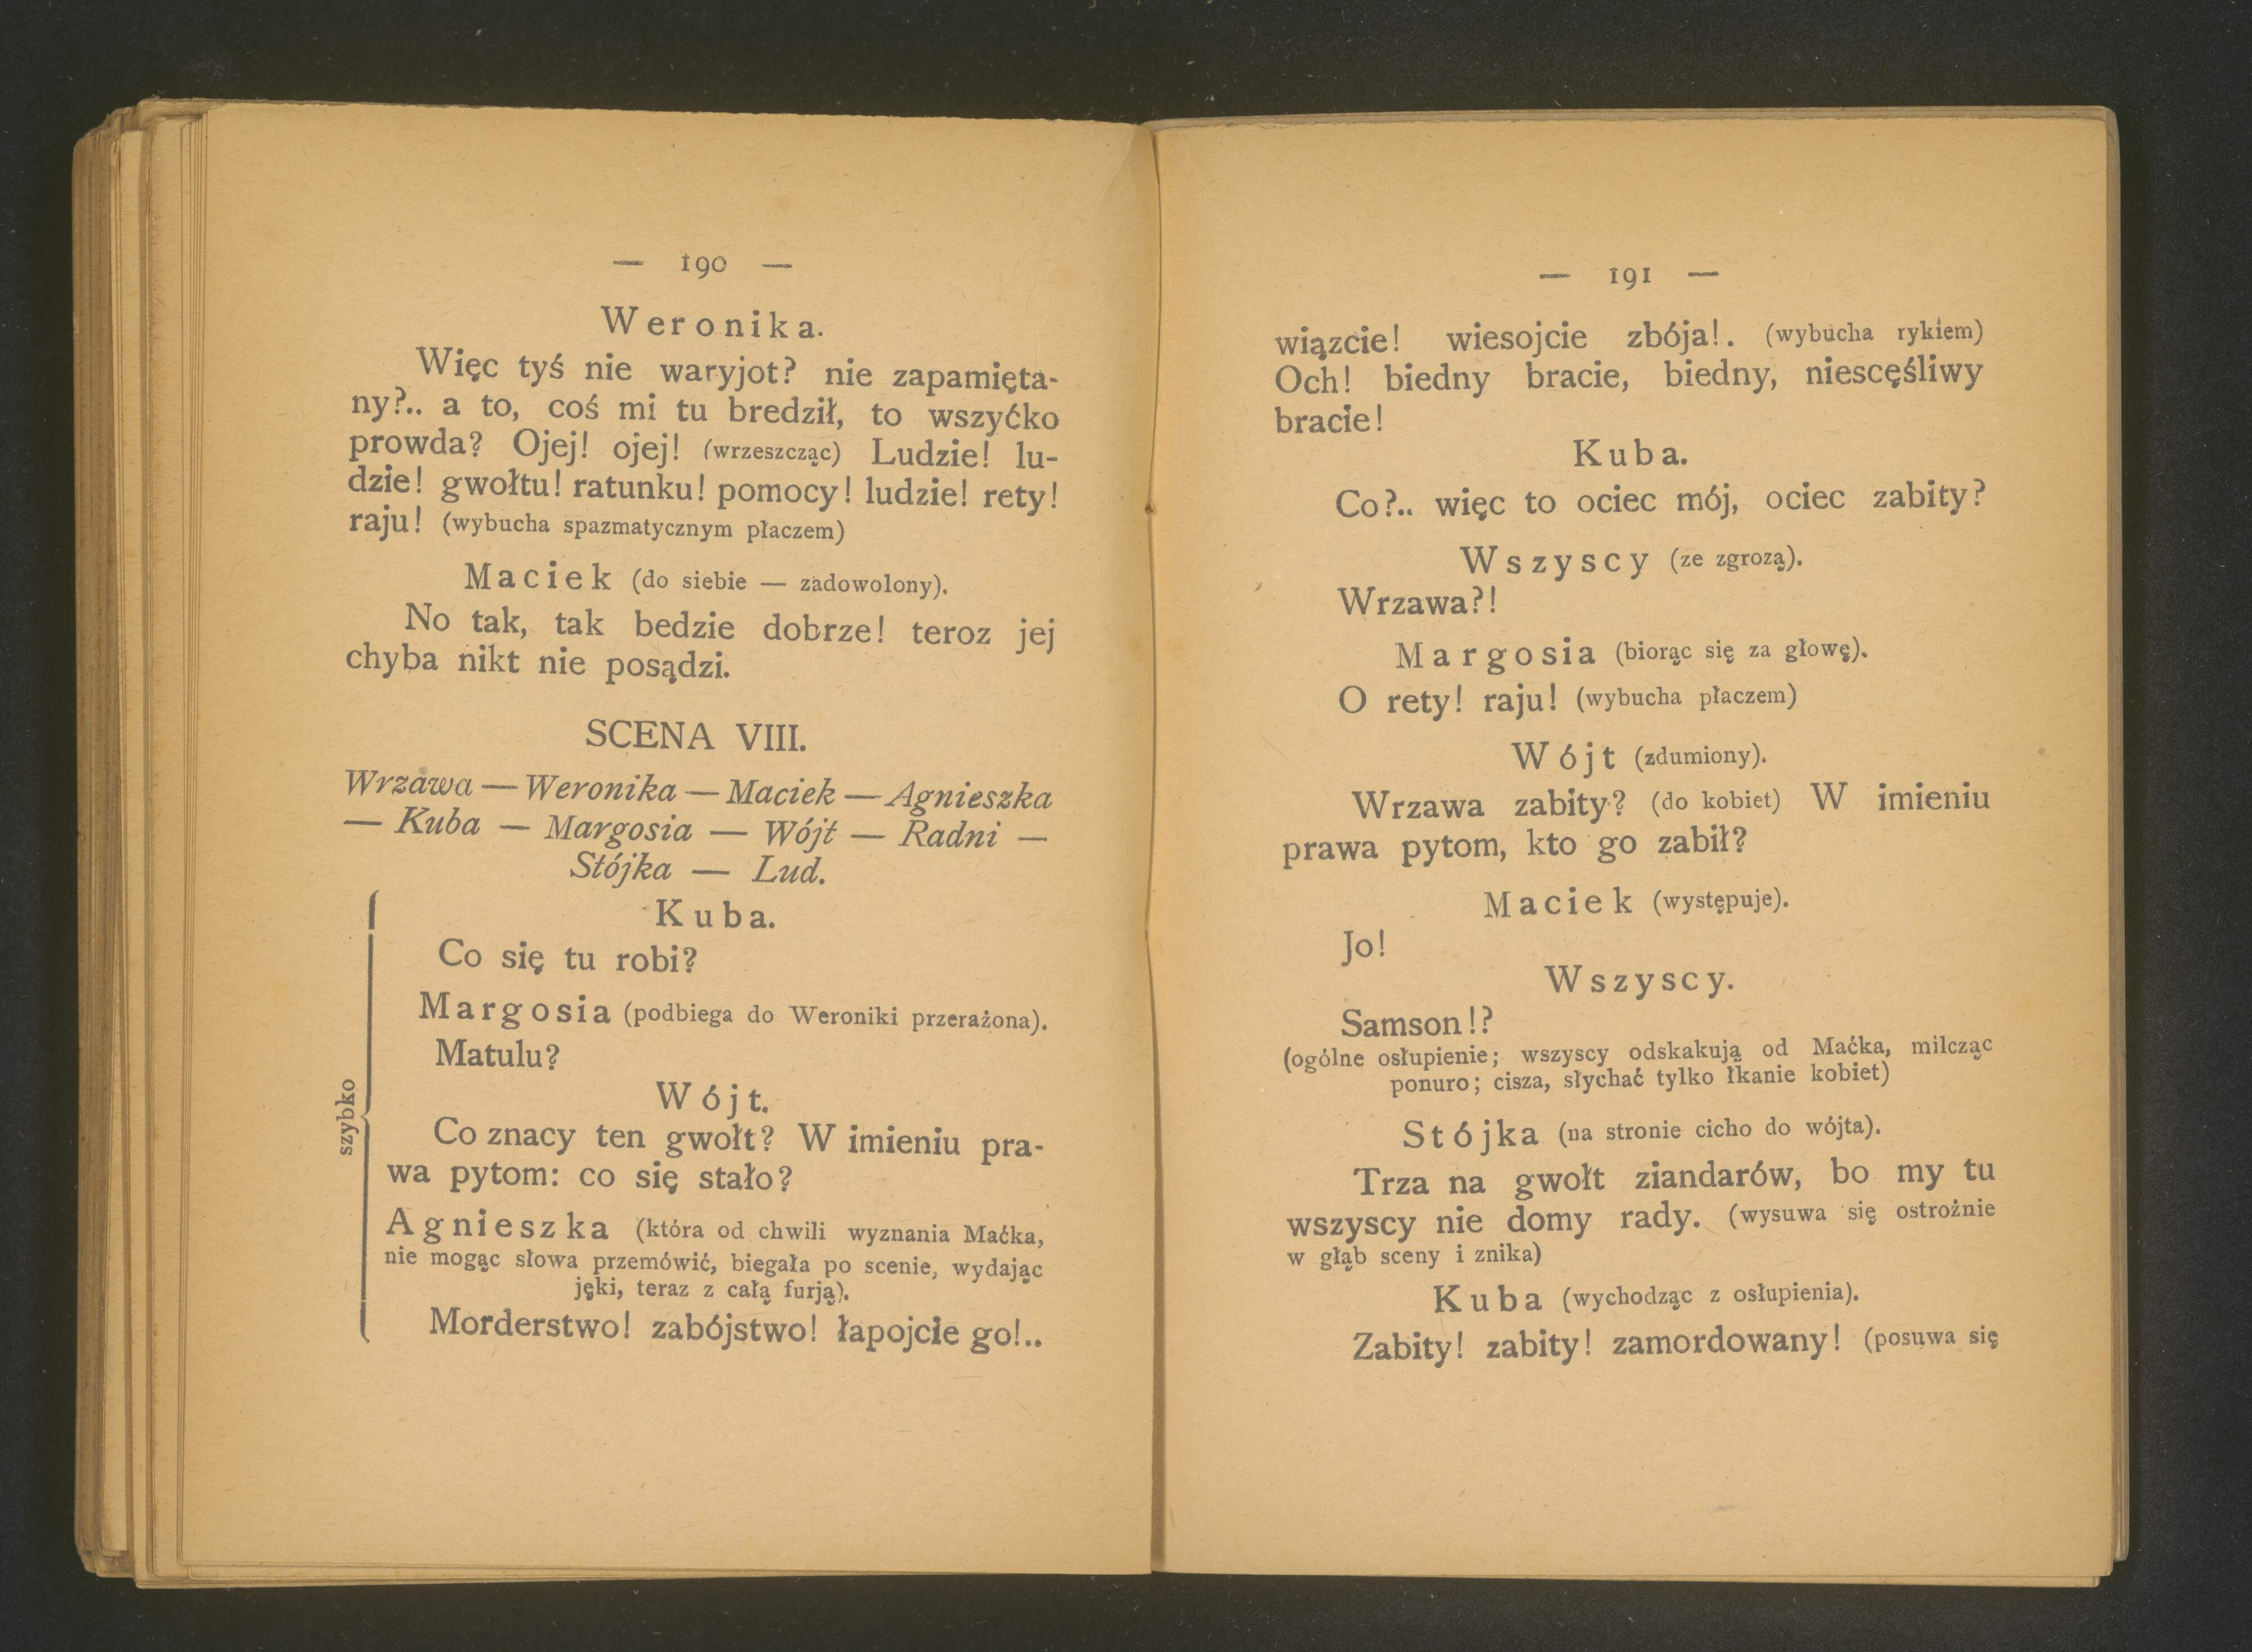 — 190 —
Weronika.
Więc tyś nie waryjot? nie zapamięta-
ny?.. a to, coś mi tu bredził, to wszyćko
prowda? Ojej! ojej! (wrzeszcząc) Ludzie! lu-
dzie! gwołtu! ratunku! pomocy! ludzie! rety!
raju! (wybucha spazmatycznym płaczem)
Maciek (do siebie — zadowolony).
No tak, tak bedzie dobrze! teroz jej
chyba nikt nie posądzi.
SCENA VIII.
Wrzawa — Weronika — Maciek — Agnieszka
— Kuba — Margosia — Wójt — Radni —
Stójka — Lud.
szybko
Kuba.
Co się tu robi?
Margosia (podbiega do Weroniki przerażona).
Matulu?
Wójt.
Co znacy ten gwołt? W imieniu pra-
wa pytom: co się stało?
Agnieszka (która od chwili wyznania Maćka,
nie mogąc słowa przemówić, biegała po scenie, wydając
jęki, teraz z całą furją).
Morderstwo! zabójstwo! łapojcie go!..
— 191 —
wiązcie! wiesojcie zbója!. (wybucha rykiem)
Och! biedny bracie, biedny, niescęśliwy
bracie!
Kuba.
Co?.. więc to ociec mój, ociec zabity?
Wszyscy (ze zgrozą).
Wrzawa?!
Margosia (biorąc się za głowę).
O rety! raju! (wybucha płaczem)
Wójt (zdumiony).
Wrzawa zabity? (do kobiet) W imieniu
prawa pytom, kto go zabił?
Maciek (występuje).
Jo!
Wszyscy.
Samson!?
(ogólne osłupienie; wszyscy odskakują od Maćka, milcząc
ponuro; cisza, słychać tylko łkanie kobiet)
Stójka (na stronie cicho do wójta).
Trza na gwołt ziandarów, bo my tu
wszyscy nie domy rady. (wysuwa się ostrożnie
w głąb sceny i znika)
Kuba (wychodząc z osłupienia).
Zabity! zabity! zamordowany! (posuwa się